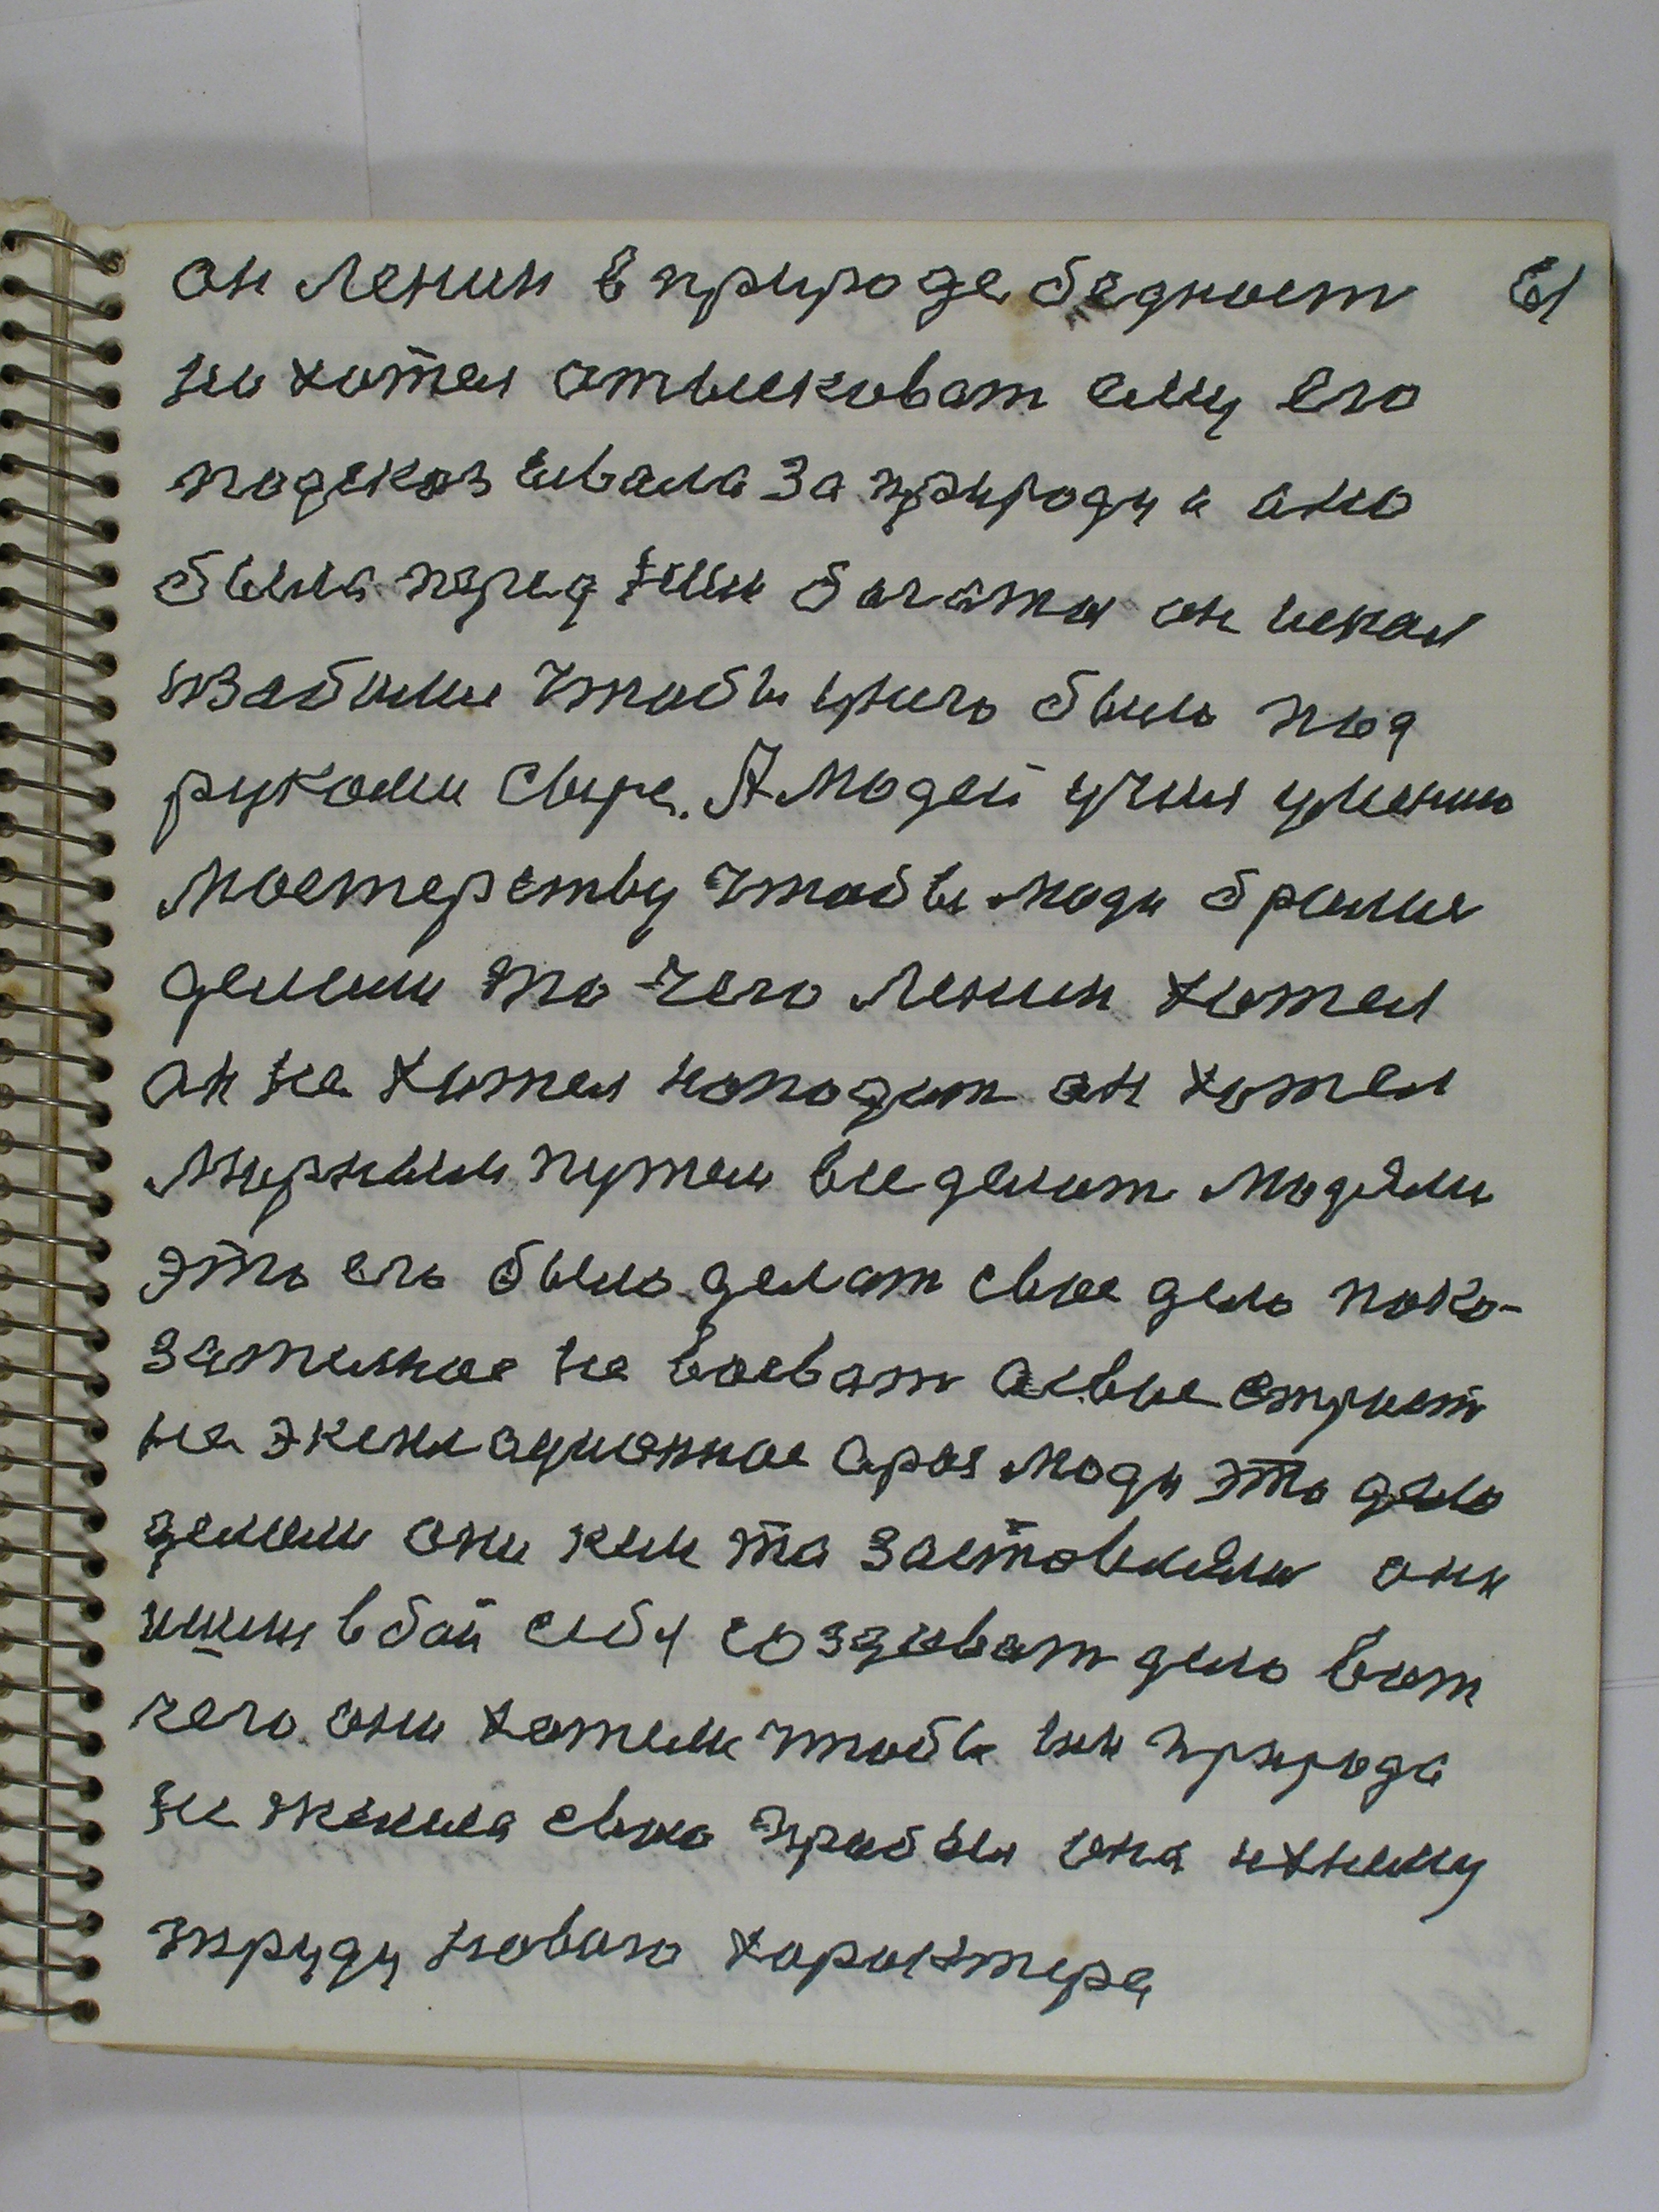 он Ленин в природе бедност 61
не хотел отысковат ему его
подсказывала за природу а она
была перед ним багатая он искал
изобилие чтобы у него было под
руками сыре. А людей учил уменю
мостерству чтобы люди брали
делали то чего Ленин хотел
он не хотел нападат он хотел
мирным путем все делат людями
это его было делат свое дело пока-
зателное не воеват а свое строит
не эксплационное а раз люди это дело
делали они кем та заставляли они
шли в бой себя создават дело вот
чего они хотели чтобы им природа
не жилила свою прибыл она ихнему
труду новаго характера